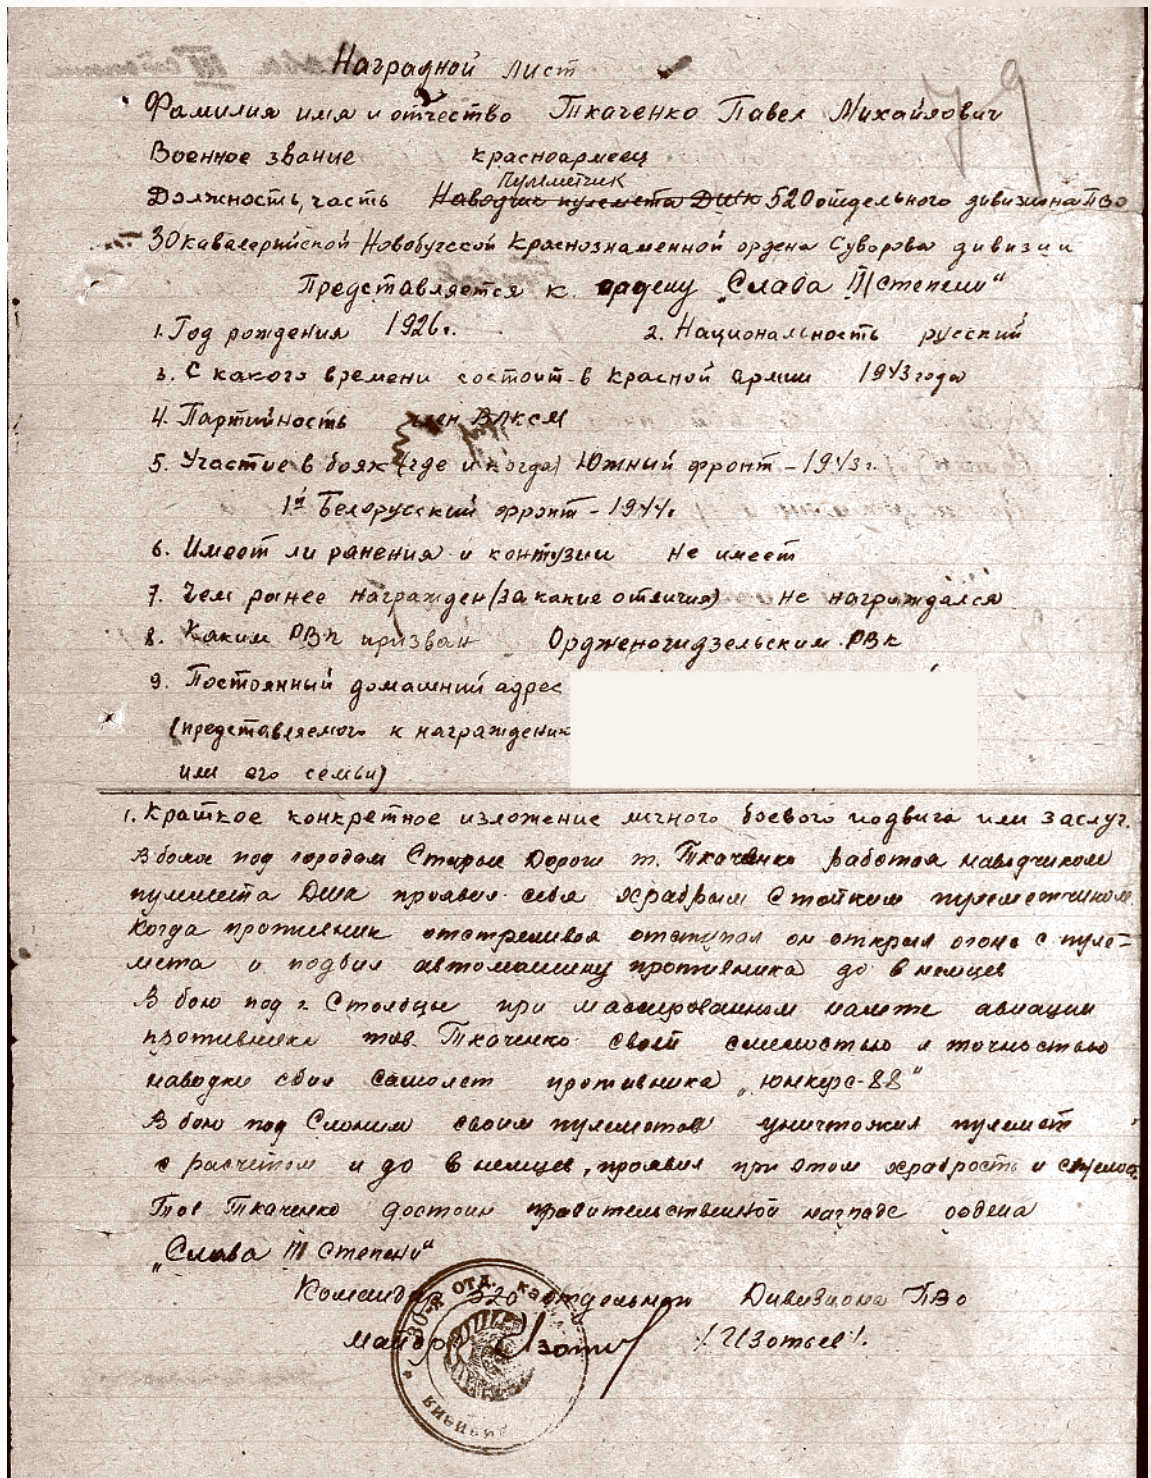 Наградной лист
79
Фамилия имя и отчество Ткаченко Павел Михайлович
Военное звание красноармеец
Пулеметчик
Должность, часть Наводчик пулемета ДШК 520 отдельного дивизиона ПВО
30 кавалерийской Новобугской Краснознаменной ордена Суворова дивизии
Представляется к ордену „Слава III степени"
1. Год рождения 1926г. 2. Национальность русский
3. С какого времени состоит в Красной армии 1943 года
4. Партийность член ВЛКСМ
5. Участие в боях (где и когда) Южный фронт - 1943г.
1й Белорусский фронт - 1944г.
6. Имеет ли ранения и контузии не имеет
7. Чем ранее награжден (за какие отличия) не награждался
8. Каким РВК призван Орджоникидзельским РВК
9. Постоянный домашний адрес
(представляемого к награждению
или его семьи)
1. Краткое конкретное изложение личного боевого подвига или заслуг.
В боях под городом Старые Дороги т. Ткаченко работая наводчиком
пулемета ДШК проявил себя храбрым стойким пулеметчиком
Когда противник отстреливая отступал он открыл огонь с пуле-
мета и подбил автомашину противника до 8 немцев
В бою под г. Столбцы при массированном налете авиации
противника тов. Ткаченко своей смелостью и точностью
наводки сбил самолет противника „Юнкерс-88"
В бою под Слоним своим пулеметом уничтожил пулемет
с расчетом и до 8 немцев, проявил при этом храбрость и смелос.
Тов Ткаченко достоин правительственной награде ордена
„Слава III степени"
Командир 520 отдельного Дивизиона ПВО
майор Изотьев /Изотьев/.
30-я ОТД. КАВ ДИВИЗИЯ